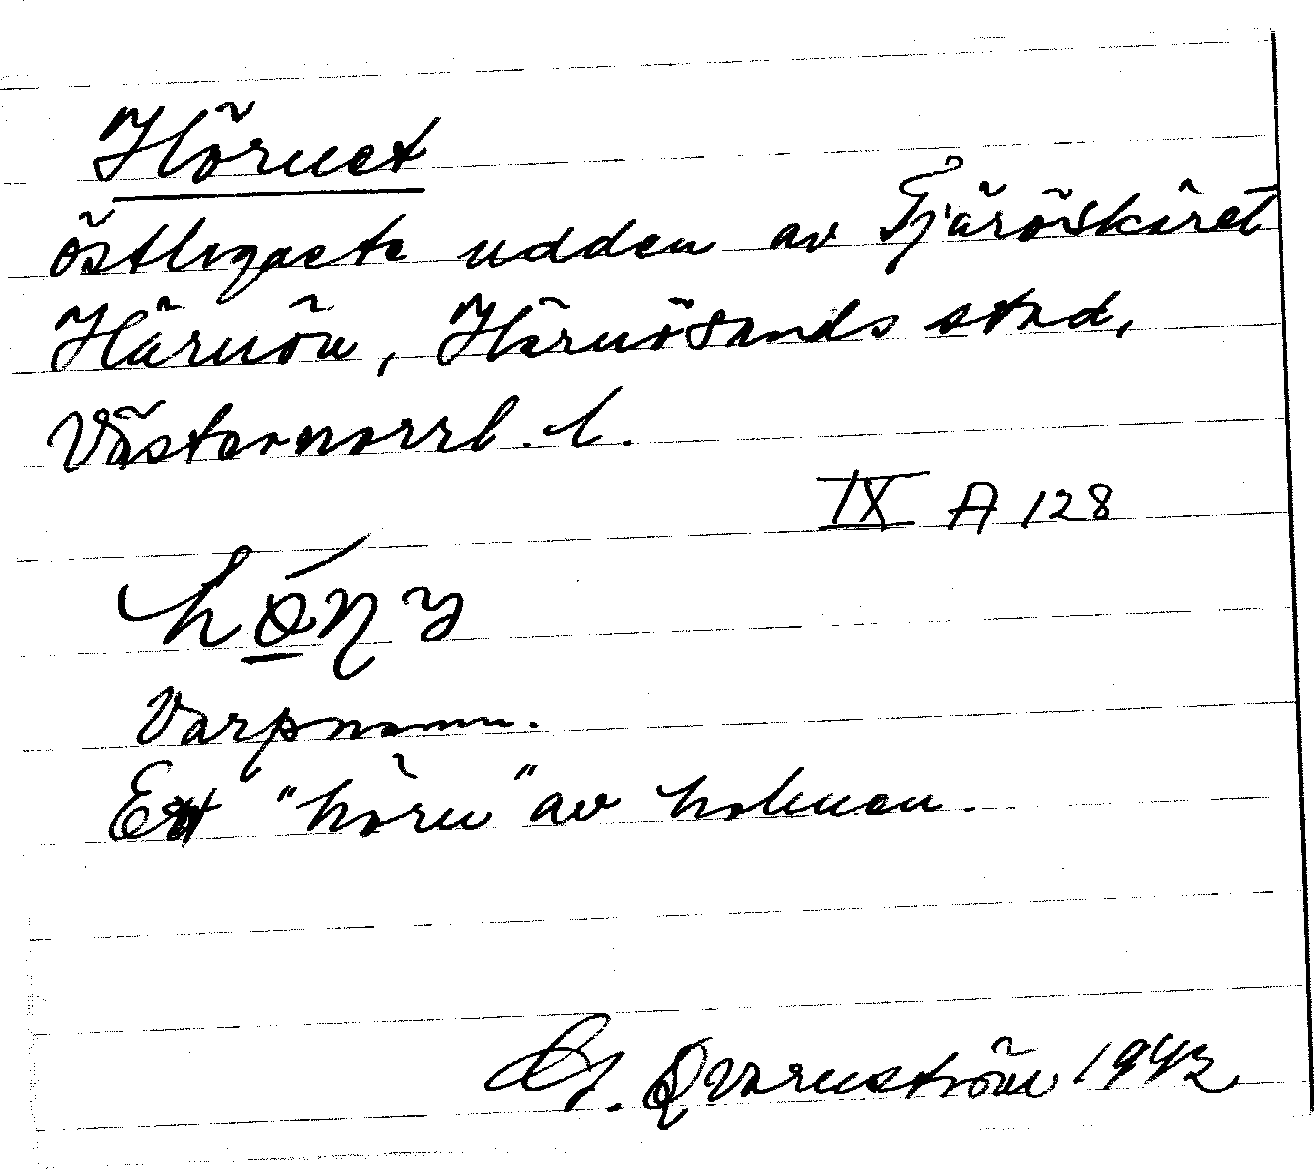 Hörnet
östligaste udden av Tjäröskäret
Härnön, Härnösands stad,
Västernorrl. l.
IX A 128
Varpnamn.
Ett "hörn" av holmen.
Qvarnström 1942